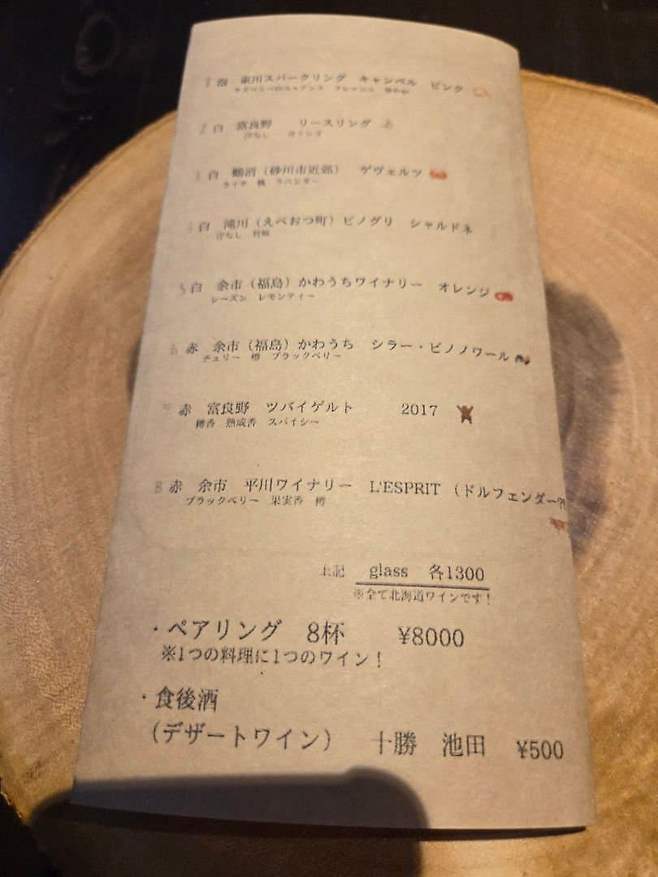 1 泡 東川スパークリング キャンベル ピンク
2 白 富良野 リースリング
洋なし
3 白 鶴沼（砂川市近郊） ゲヴェルツ
ライチ 桃 ラベンダー
4 白 滝川（えべおつ町）ピノグリ シャルドネ
洋なし 柑橘
5 白 余市（福島）かわうちワイナリー オレンジ
レーズン レモンティー
6 赤 余市（福島）かわうち シラー・ピノノワール
チェリー 樽 ブラックベリー
7 赤 富良野 ツバイゲルト 2017
樽香 熟成香 スパイシー
8 赤 余市 平川ワイナリー L'ESPRIT （ドルフェンダー
ブラックベリー 果実香 樽
上記 glass 各1300
※全て北海道ワインです！
・ペアリング 8杯 ¥8000
※1つの料理に1つのワイン！
・食後酒
（デザートワイン） 十勝 池田 ¥500